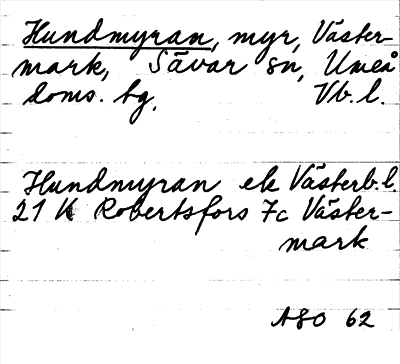 Hundmyran, myr, Väster-
mark, Sävar sn, Umeå
doms. tg. Vb. l.
Hundmyran ek Västerb.l.
21 K Robertsfors 7c Väster-
mark
ASO 62